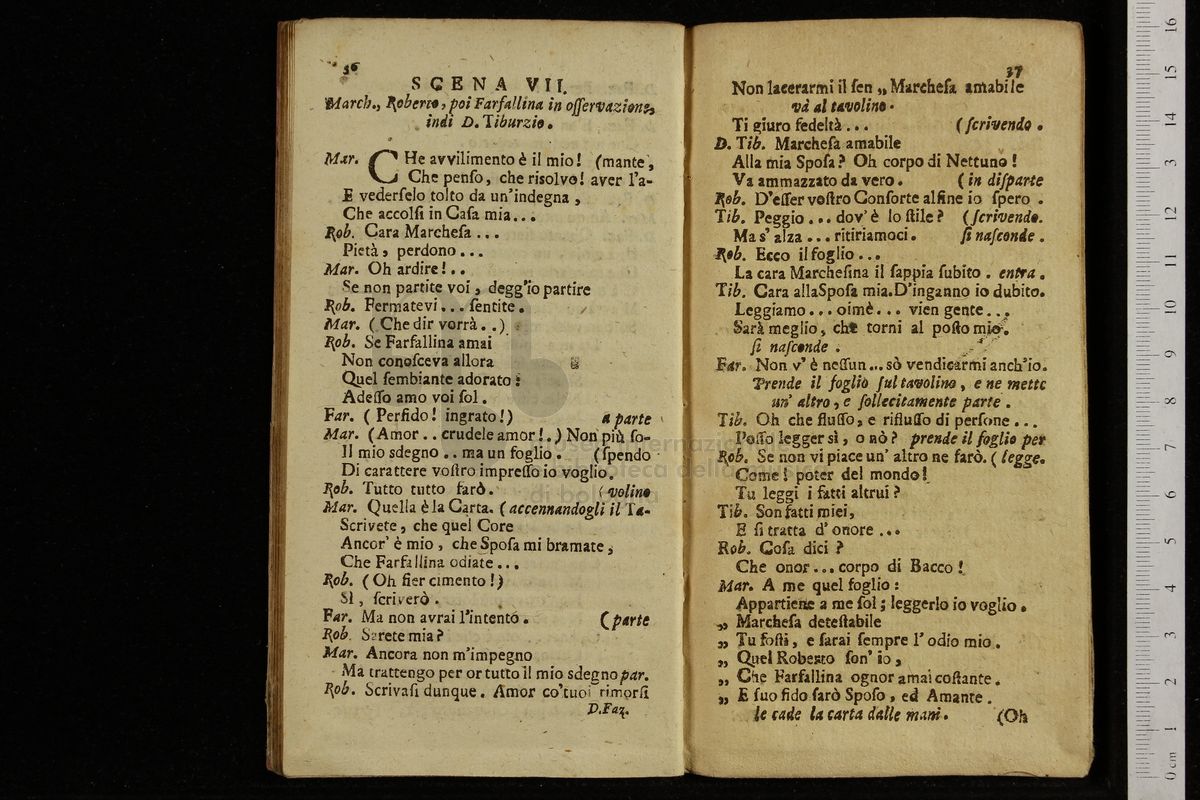 36
SCENA VII.
March., Roberto, poi Farfallina in oſſervazione,
indi D. Tiburzio.
Mar. CHe avvilimento è il mio! (mante,
Che penſo, che riſolvo! aver l'a-
E vederſelo tolto da un'indegna,
Che accolſi in Caſa mia...
Rob. Cara Marcheſa...
Pietà, perdono...
Mar. Oh ardire!..
Se non partite voi, degg'io partire
Rob. Fermatevi... ſentite.
Mar. (Che dir vorrà..)
Rob. Se Farfallina amai
Non conoſceva allora
Quel ſembiante adorato:
Adeſſo amo voi ſol.
Far. (Perfido! ingrato!) a parte
Mar. (Amor.. crudele amor!.) Non più ſo-
Il mio sdegno.. ma un foglio. (ſpendo
Di carattere voſtro impreſſo io voglio.
Rob. Tutto tutto farò. (volino
Mar. Quella è la Carta. (accennandogli il Ta-
Scrivete, che quel Core
Ancor' è mio, che Spoſa mi bramate,
Che Farfallina odiate...
Rob. (Oh fier cimento!)
Sì, ſcriverò.
Far. Ma non avrai l'intentó. (parte
Rob. Sarete mia?
Mar. Ancora non m'impegno
Ma trattengo per or tutto il mio sdegno par.
Rob. Scrivaſi dunque. Amor co'tuoi rimorſi
D.Faz.
37
Non lacerarmi il ſen „ Marcheſa amabile
và al tavolino.
Ti giuro fedeltà... (ſcrivendo.
D. Tib. Marcheſa amabile
Alla mia Spoſa? Oh corpo di Nettuno!
Va ammazzato da vero. (in diſparte
Rob. D'eſſer voſtro Conſorte alfine io ſpero.
Tib. Peggio... dov'è lo ſtile? (ſcrivendo.
Ma s'alza... ritiriamoci. ſi naſconde.
Rob. Ecco il foglio...
La cara Marcheſina il ſappia ſubito. entra.
Tib. Cara allaSpoſa mia.D'inganno io dubito.
Leggiamo... oimè... vien gente...
Sarà meglio, che torni al poſto mio.
ſi naſconde.
Far. Non v'è neſſun... sò vendicarmi anch'io.
Prende il foglio ſul tavolino, e ne mette
un' altro, e ſollecitamente parte.
Tib. Oh che fluſſo, e rifluſſo di perſone...
Poſſo legger sì, o nò? prende il foglio per
Rob. Se non vi piace un' altro ne farò. (legge.
Come! poter del mondo!
Tu leggi i fatti altrui?
Tib. Son fatti miei,
E ſi tratta d'onore...
Rob. Coſa dici?
Che onor... corpo di Bacco!
Mar. A me quel foglio:
Appartiene a me ſol; leggerlo io voglio.
„ Marcheſa deteſtabile
„ Tu foſti, e ſarai ſempre l'odio mio.
„ Quel Roberto ſon' io,
„ Che Farfallina ognor amai coſtante.
„ E ſuo fido ſarò Spoſo, ed Amante.
le cade la carta dalle mani. (Oh